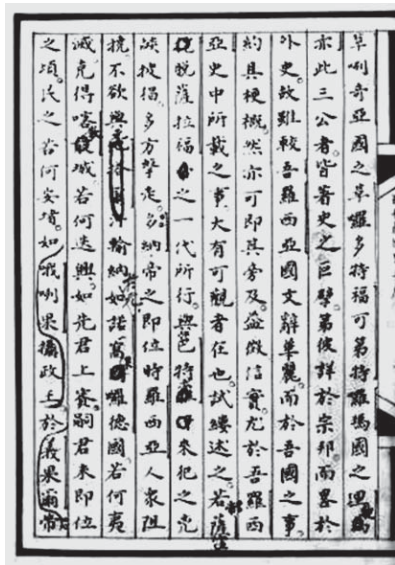 草唎奇亞國之草囉多特福可第特囉瑪國之
亦此三公者皆著史之巨擘第彼詳於宗邦而畧於
外史故雖較吾羅西亞國文辭華麗而於吾國之事
約具梗概然亦可即其旁及益徵信實尤於吾羅西
亞史中所載之事大有可觀者在也試縷述之若薩
脱薩拉福之一代所行與邑特來犯之
彼猖多方擊走多納帝之即位時羅西亞人衆阻
撓不欲與輸納如諾萬囉德國若何夷
滅克得喀城若何迭興如先君上賓嗣君未即位
之頃氏之若何安堵如哦唎果攝政王於義果爾帝